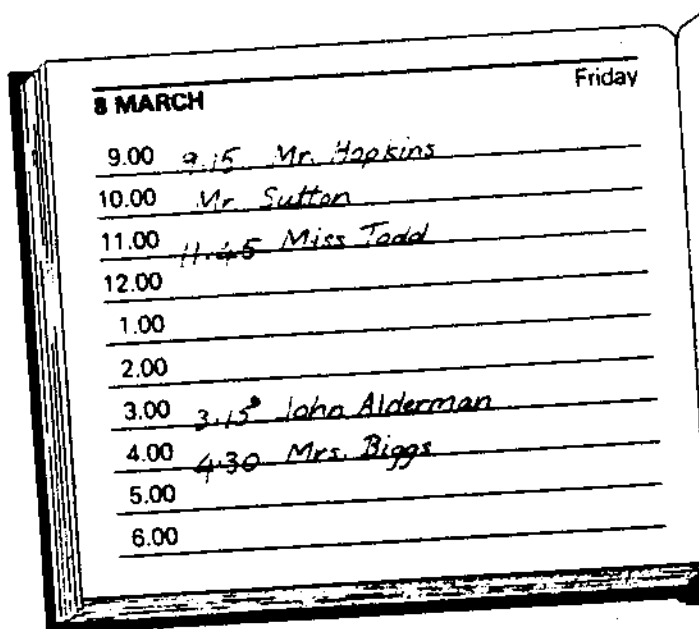 8 MARCH Friday
9.00 9.15 Mr. Hopkins
10.00 Mr. Sutton
11.00 11.45 Miss Todd
12.00
1.00
2.00
3.00 3.15 John Alderman
4.00 4.30 Mrs. Biggs
5.00
6.00